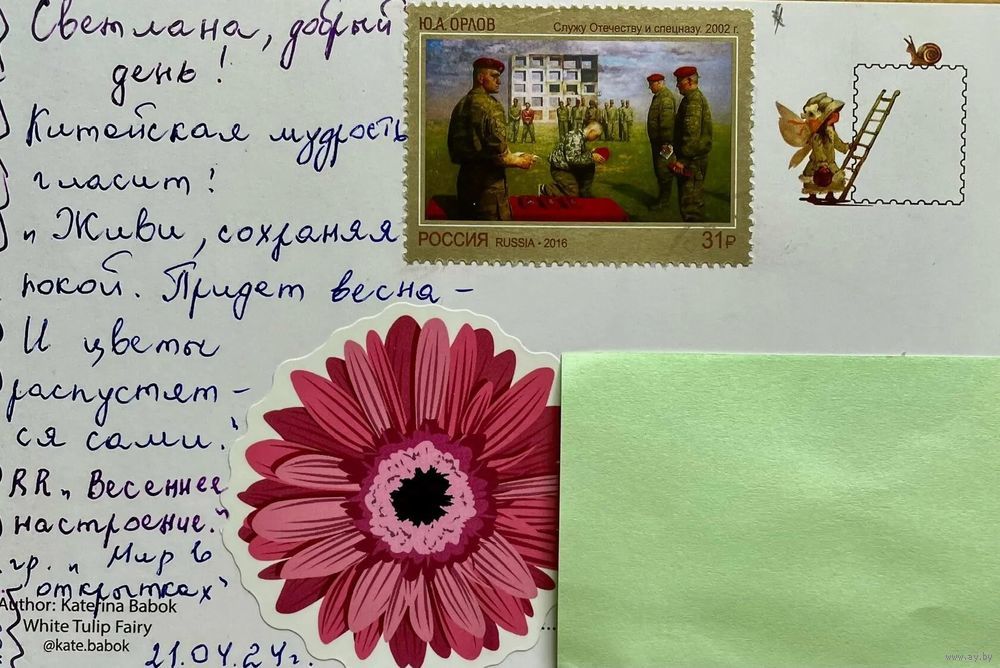 Светлана, добрый
день!
Китайская мудрость
гласит!
„Живи, сохраняя
покой. Придет весна –
И цветы
распустят –
ся сами."
RR „Весеннее
настроение."
гр. „Мир в
открытках"
Author: Katerina Babok
White Tulip Fairy
@kate.babok
21.04.24г.
Ю.А. ОРЛОВ
Служу Отечеству и спецназу. 2002 г.
РОССИЯ RUSSIA • 2016
31₽
www.ay.by